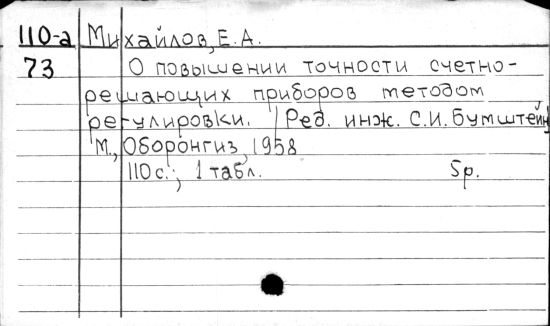 110-а Михайлов, Е.А.
73 О повышении точности счетно-
решающих приборов методом
регулировки. /Ред. инж. С.И. Бумштейн
М., Оборонгиз, 1958
110 с.; 1 табл. 5р.